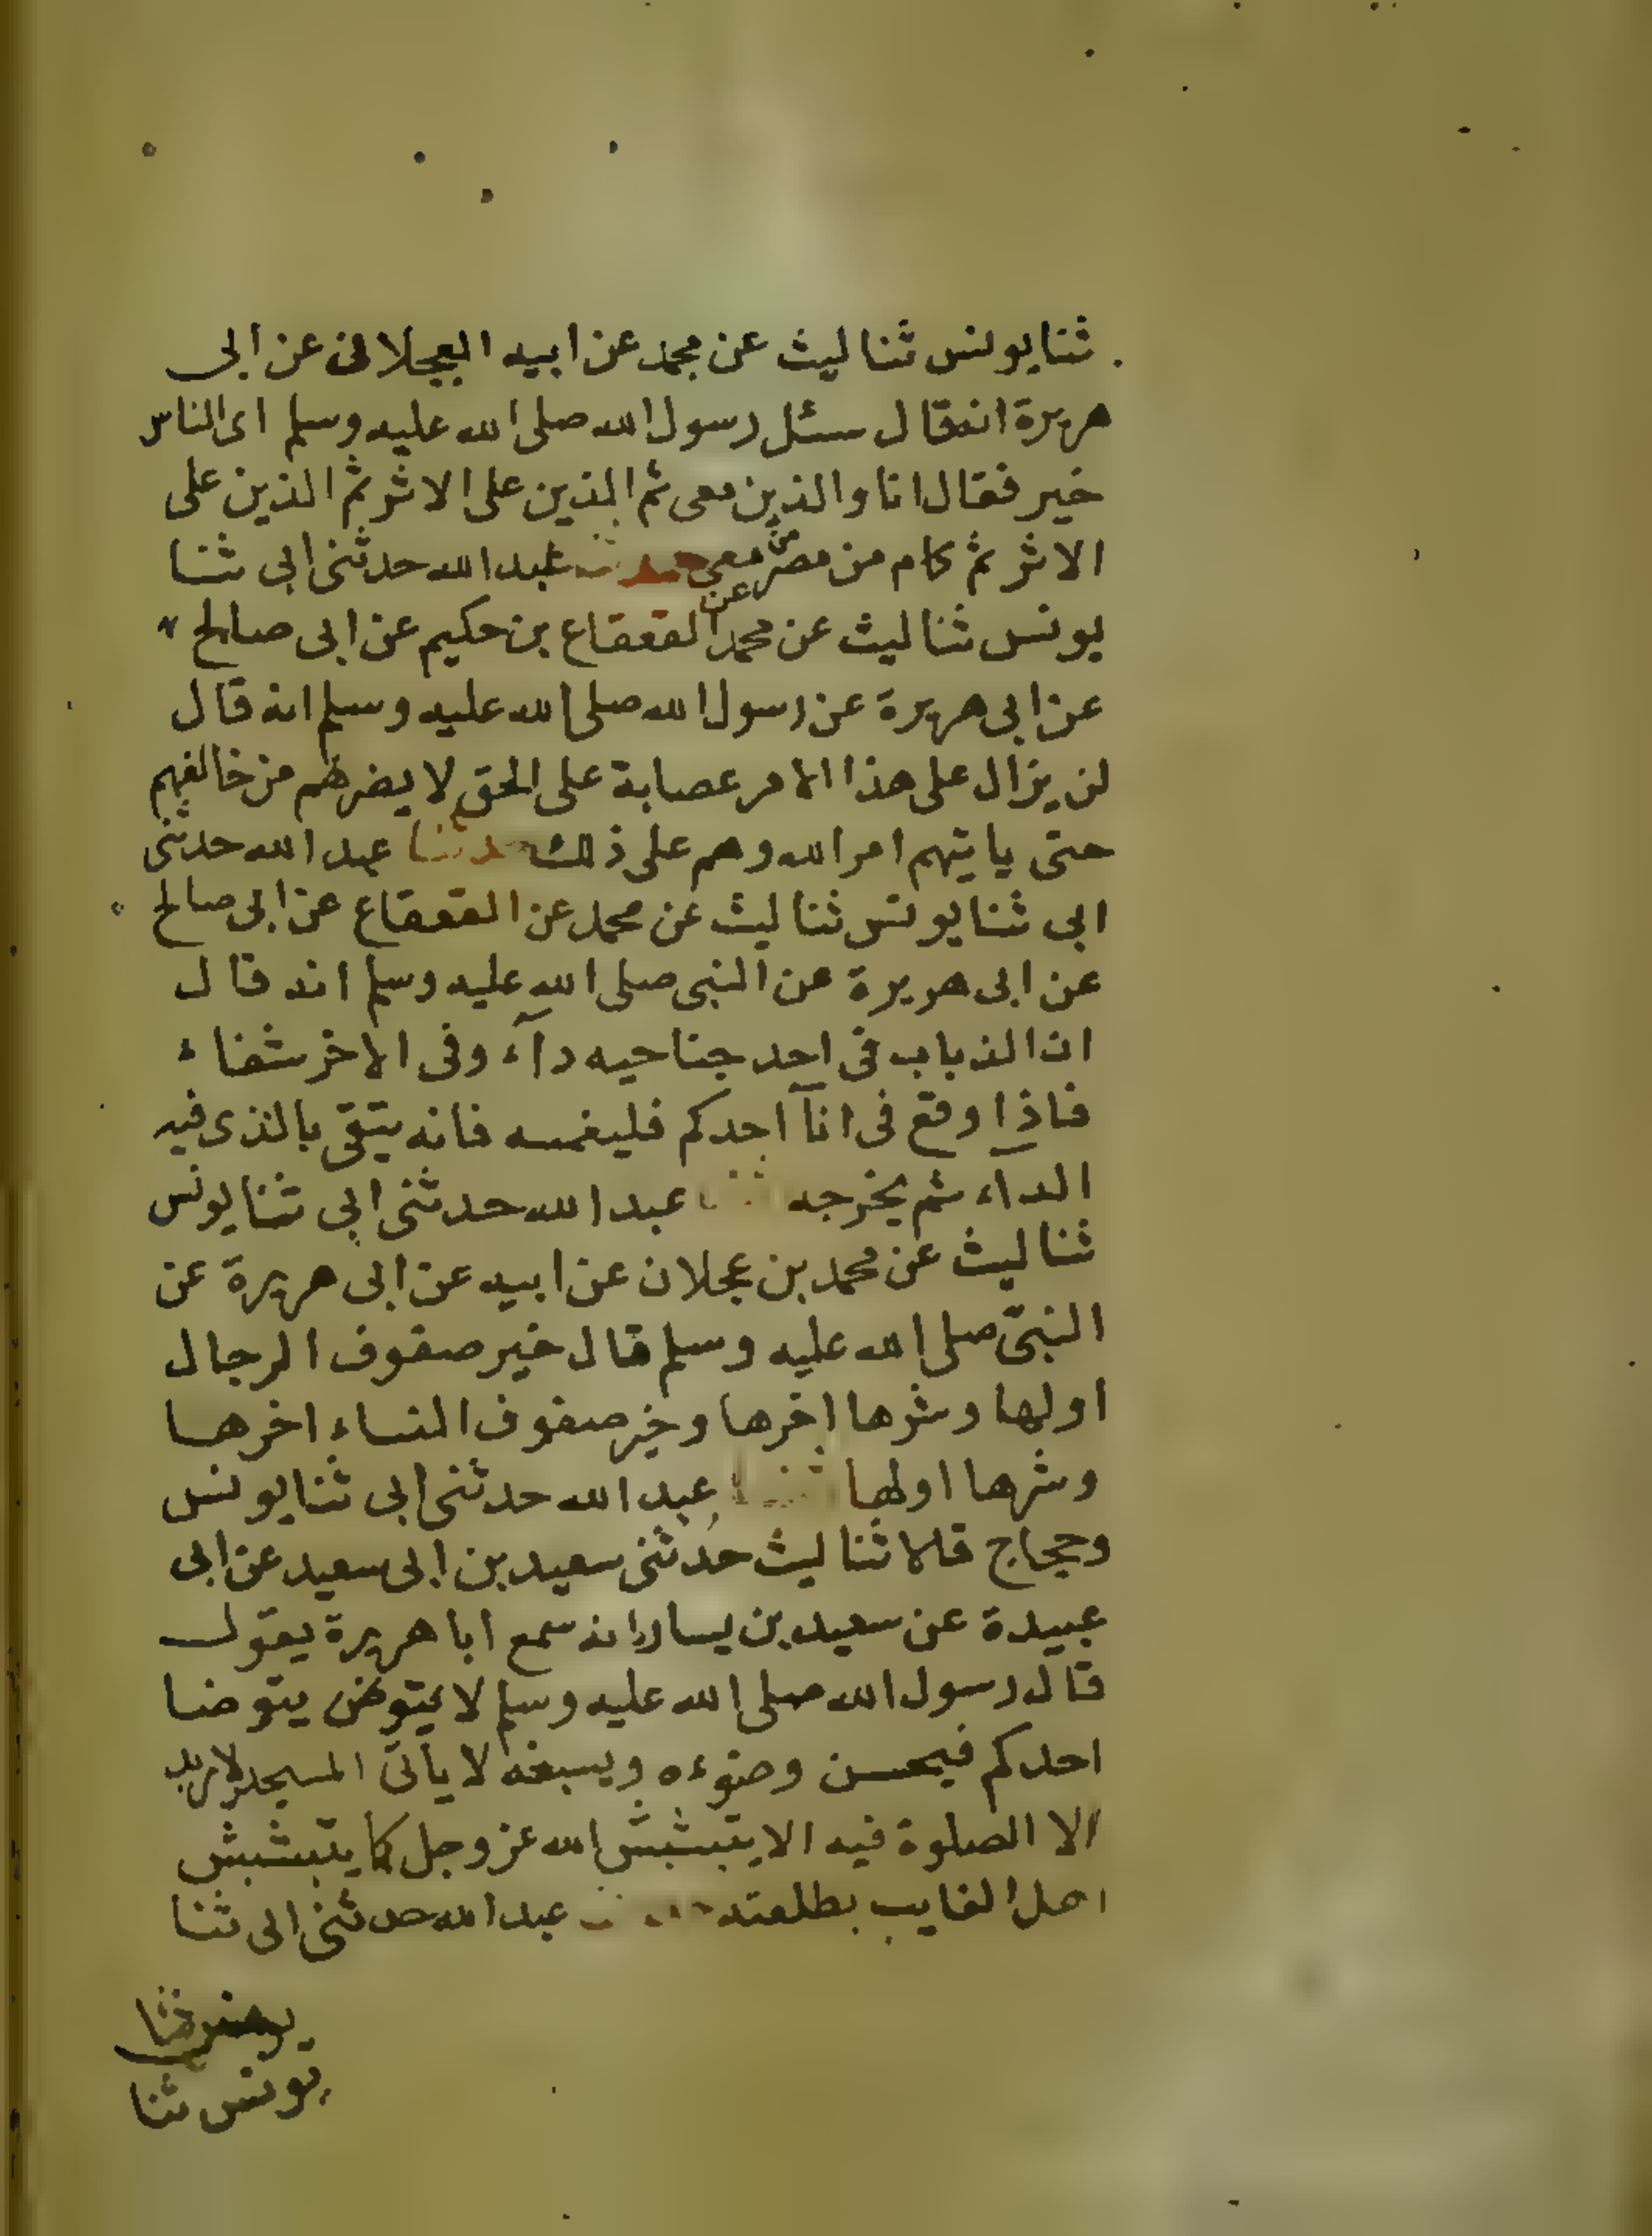 ثنا يونس ثنا ليث عن محمد عن ابيه العجلانى عن ابى
هريرة انه قال سئل رسول الله صلى الله عليه وسلم اى الناس
خير فقال انا والذين معى ثم الذين على الاثر ثم الذين على
الاثر ثم كام من مصر من معى حدثنا عبد الله حدثنى ابى ثنا
يونس ثنا ليث عن محمد عن القعقاع بن حكيم عن ابى صالح
عن ابى هريرة عن رسول الله صلى الله عليه وسلم انه قال
لن يزال على هذا الامر عصابة على الحق لا يضرهم من خالفهم
حتى ياتيهم امر الله وهم على ذلك حدثنا عبد الله حدثنى
ابى ثنا يونس ثنا ليث عن محمد عن القعقاع عن ابى صالح
عن ابى هريرة عن النبى صلى الله عليه وسلم انه قال
ان الذباب فى احد جناحيه دآء وفى الاخر شفاء
فاذا وقع فى انآ احدكم فليغمسه فانه يتقى بالذى فيه
الدآء ثم يخرجه ثنا عبد الله حدثنى ابى ثنا يونس
ثنا ليث عن محمد بن عجلان عن ابيه عن ابى هريرة عن
النبىّ صلى الله عليه وسلم قال خير صفوف الرجال
اولها وشرها اخرها وخير صفوف النساء اخرها
وشرها اولها ثنا عبد الله حدثنى ابى ثنا يونس
وحجاج قلا ثنا ليث حدثنى سعيد بن ابى سعيد عن ابى
عبيدة عن سعيد بن يسار انه سمع ابا هريرة يقول
قال رسول الله صلى الله عليه وسلم لا يتوضى يتوضا
احدكم فيحسن وضوءه ويسبغه لا يأتى المسجد لا يريد
الا الصلوة فيه الا يتبشبش الله عز وجل كما يتبشبش
اهل الغايب بطلعته عبد الله حدثنى ابى ثنا
يونس ثنا